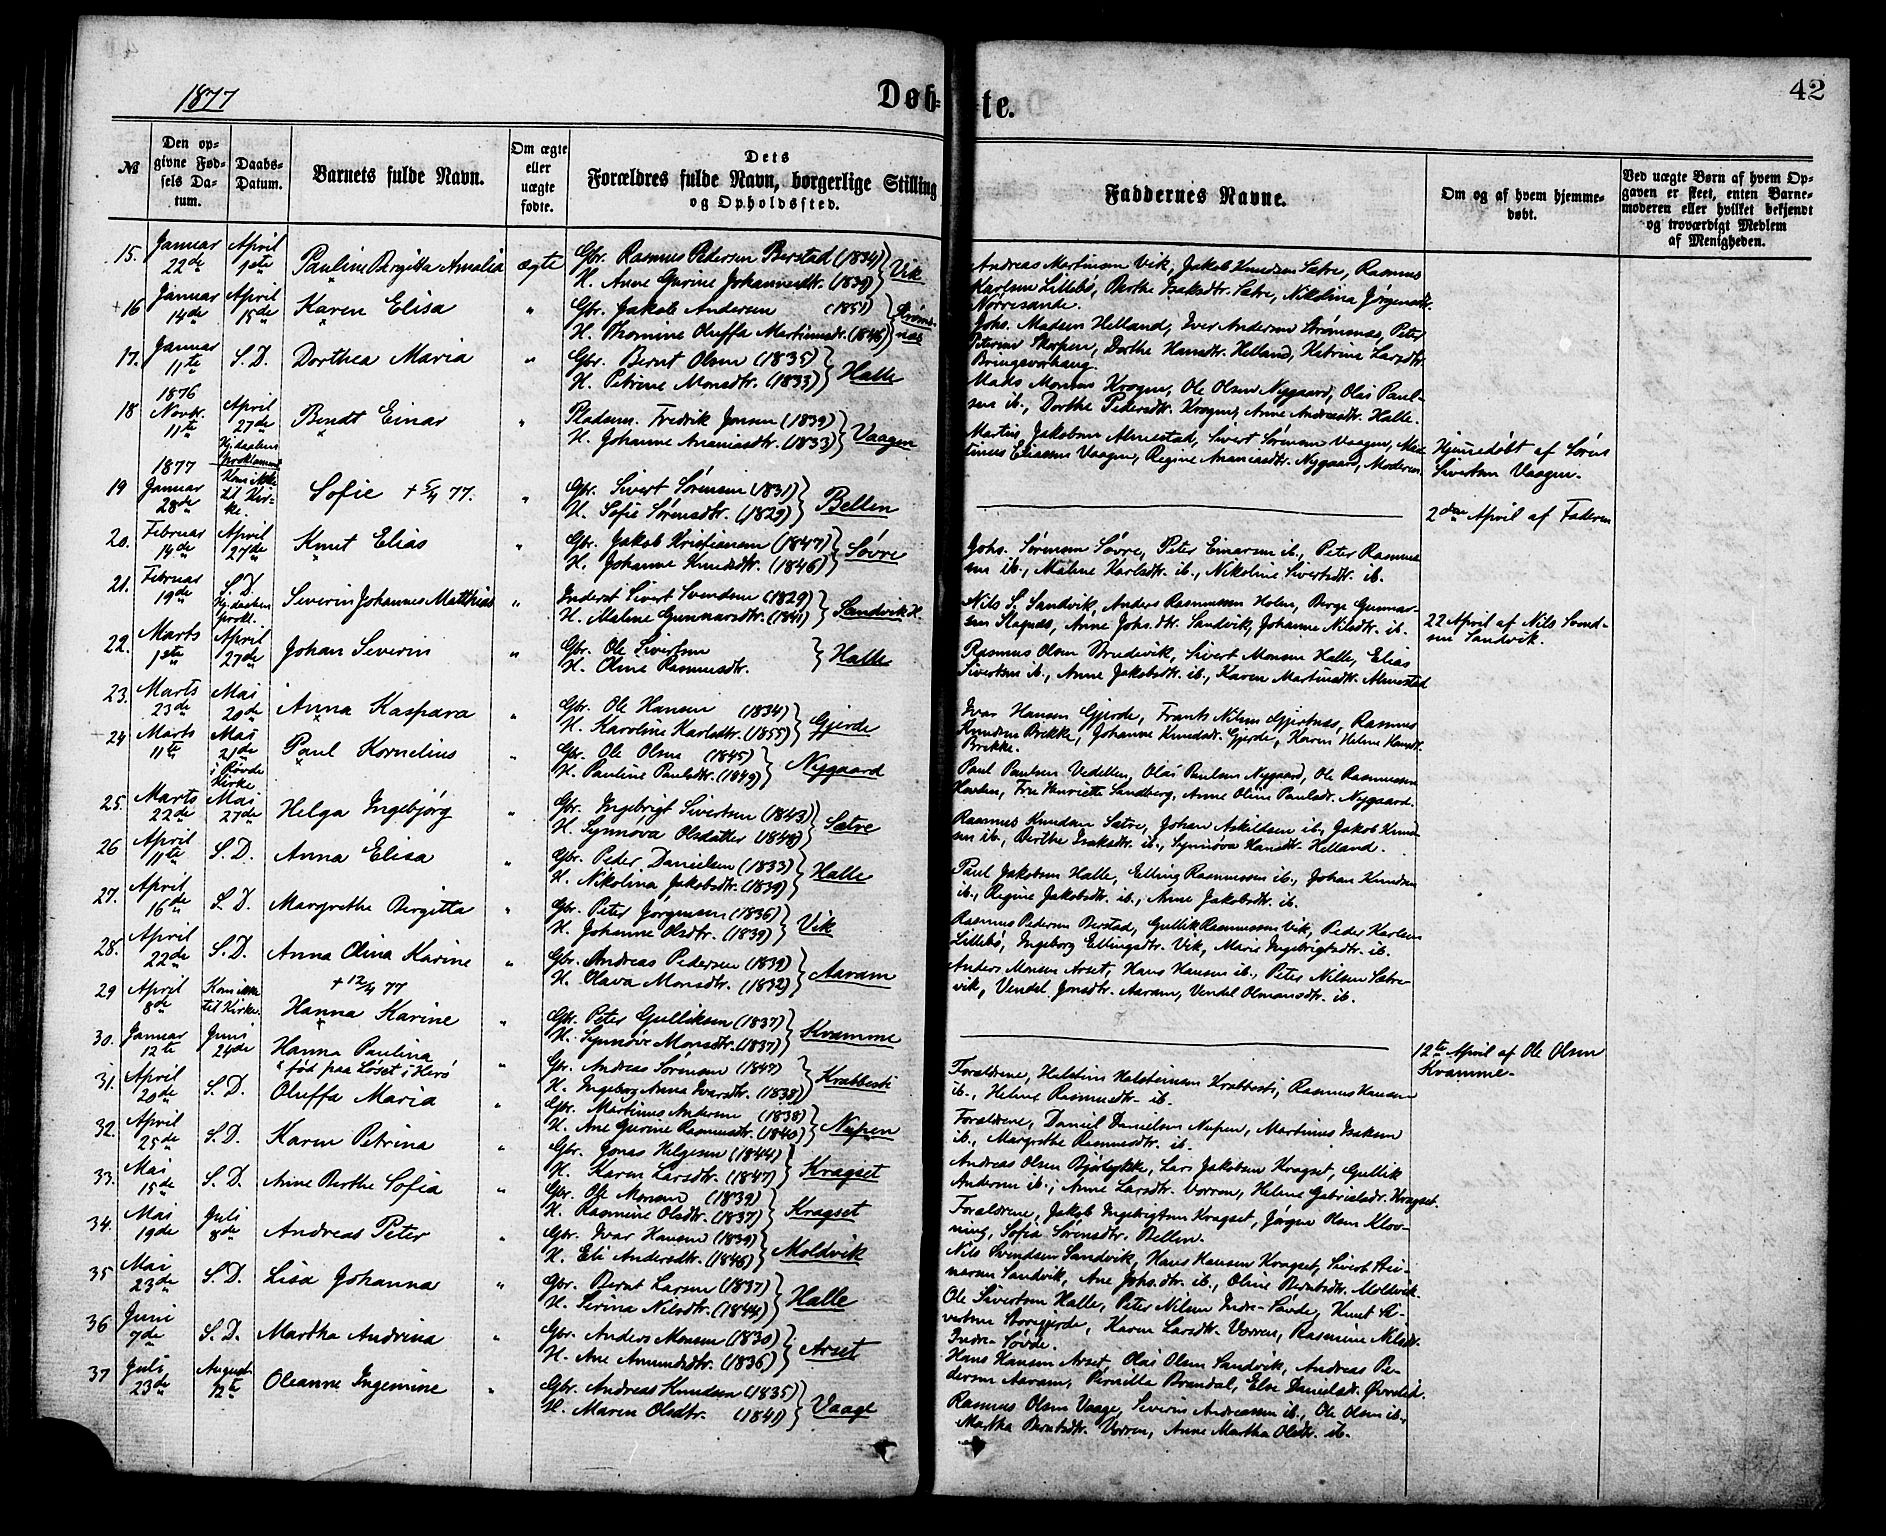 1877
Døb-
-te.
42
№
Den op-
givne Fød-
sels Da-
tum.
Daabs-
Datum.
Barnets fulde Navn.
Om ægte
eller
uægte
fødte.
Dets
Forældres fulde Navn, borgerlige Stilling
og Opholdssted.
Faddernes Navne.
Om og af hvem hjemme-
døbt.
Ved uægte Børn af hvem Op-
gaven er skeet, enten Barne-
moderen eller hvilket bekjendt
og troværdigt Medlem
af Menigheden.
15. Januar 22de April 1ste Pauline Birgitta Amalia ægte Gbr. Rasmus Pedersen Berstad (1834)
H. Anne Gurine Johannesdtr. (1839) Vik
Andreas Martinsen Vik, Jakob Knudsen Sætre, Rasmus
Karlsen Lillebø, Berthe Isaksdtr. Sætre, Nikolina Jørgensdtr.
Nørresande.
16 Januar 14de April 15de Karen Elisa " Gbr. Jakob Andersen (1851)
H. Thomine Oluffa Martinusdtr. (1846) Strøms-
næs
Johs. Madsen Helland, Iver Andersen Strømsnæs, Peter
Petersen Skorpen, Dorthe Hansdtr. Helland, Katrine Larsdtr.
Bringsvorhaug.
17. Januar 11te S. D. Dorthea Maria " Gbr. Bernt Olsen (1835)
H. Petrine Monsdtr. (1833) Halle
Mads Monsen Kragen, Ole Olsen Nygaard, Olai Paul-
sen ib., Dorthe Pedersdtr. Kragen, Anne Andreasdtr. Halle.
18 1876 Novbr. 11te April 27de Hj.daaben Proklameret Bendt Einar " Pladsm. Fredrik Jonsen (1839)
H. Johanne Ananiasdtr. (1833) Vaagen
Martin Jakobsen Almestad, Sivert Sørensen Vaagen, Mar-
tinus Eliassen Vaagen, Regine Ananiasdtr. Nygaard, Moderen
Hjemmedøbt af Søren
Sivertsen Vaagen.
19 1877 Januar 28de Kom ikke til Kir-
ke. Sofie + 5/4 77. " Gbr. Sivert Sørensen (1831)
H. Sofie Sørensdtr. (1829) Bellen
2den April af Faderen
20. Februar 14de April 27de Knut Elias " Gbr. Jakob Kristiansen (1847)
H. Johanne Knudsdtr. (1846) Søvre
Johs. Sørensen Søvre, Peter Einarsen ib., Peter Rasmus-
sen ib., Malene Karlsdtr. ib., Nikoline Sivertsdtr. ib.
21. Februar 19de S. D. Hj.daaben prokl. Severin Johannes Matthias " Inderst Sivert Svendsen (1829)
H. Malene Gunnarsdtr. (1841) Sandvik H.
Nils S. Sandvik, Anders Rasmussen Holm, Berge Gunnar-
sen Slagnæs, Anne Johs.dtr. Sandvik, Johanne Nilsdtr. ib.
22 April af Nils Svend-
sen Sandvik.
22. Marts 1ste April 27de Johan Severin " Gbr. Ole Sivertsen
H. Oline Rasmusdtr. Halle
Rasmus Olsen Brudevik, Sivert Monsen Halle, Elias
Sivertsen ib., Anne Jakobsdtr. ib., Karen Martinsdtr. Almestad
23. Marts 23de Mai 20de Anna Kaspara " Gbr. Ole Hansen (1834)
H. Karoline Karlsdtr. (1855) Gjerde
Ivar Hansen Gjerde, Frants Nilsen Gjertnæs, Rasmus
Knudsen Brekke, Johanne Knudsdtr. Gjerde, Karen Helene Hansdtr.
Brekke.
24 Marts 11te Mai 21de i Røvde Kirke Paul Kornelius " Gbr. Ole Olsen (1845)
H. Pauline Paulsdtr. (1849) Nygaard
Paul Paulsen Vedellen, Olai Paulsen Nygaard, Ole Rasmussen
Havlen, Fru Henriette Sandberg, Anne Oline Paulsdtr. Nygaard.
25. Marts 22de Mai 27de Helga Ingebjørg " Gbr. Ingebrigt Sivertsen (1843)
H. Synnøva Olsdatter (1848) Sætre
Rasmus Knudsen Sætre, Johan Askildsen ib., Jakob Knud-
sen ib., Berthe Isaksdtr. ib., Synnøva Hansdtr. Helland.
26 April 11te S. D. Anna Elisa " Gbr. Peder Danielsen (1833)
H. Nikolina Jakobsdtr. (1839) Halle
Paul Jakobsen Halle, Elling Rasmussen ib., Johan Knudsen
ib., Regine Jakobsdtr. ib., Anne Jakobsdtr. ib.
27. April 16de S. D. Margrethe Birgitta " Gbr. Peter Jørgensen (1836)
H. Johanne Olsdtr. (1839) Vik
Rasmus Pedersen Berstad, Gullik Rasmussen Vik, Peder Karlsen
Lillebø, Ingeborg Ellingsdtr. Vik, Marie Ingebrigtsdtr. ib.
28. April 22de S. D. Anna Olina Karine " Gbr. Andreas Pedersen (1839)
H. Olava Monsdtr. (1832) Aaram
Anders Monsen Arset, Hans Hansen ib., Peter Nilsen Sætre-
vik, Vendel Jonsdtr. Aaram, Vendel Olmansdtr. ib.
29 April 8de Kom ikke til Kirke. + 12/4 77
Hanna Karine " Gbr. Peter Gulliksen (1837)
H. Synnøve Monsdtr. (1837) Kvamme
12te April af Ole Olsen
Kvamme.
30. Januar 12te Juni 24de Hanna Paulina
fød paa Løset i Herø " Gbr. Andreas Sørensen (1847)
H. Ingeborg Anna Ivarsdtr. (1838) Krabbesti
Forældrene, Halstein Halsteinsen Krabbesti, Rasmus Hansen
ib., Helene Rasmusdtr. ib.
31. April 20de S. D. Oluffa Maria " Gbr. Martinus Andersen (1838)
H. Ane Gurine Rasmusdtr. (1840) Nupen
Forældrene, Daniel Danielsen Nupen, Martinus Isaksen
ib., Margrethe Rasmusdtr. ib.
32. April 25de S. D. Karen Petrina " Gbr. Jonas Helgesen (1844)
H. Karen Larsdtr. (1847) Kragset
Andreas Olsen Bjørlykke, Lars Jakobsen Kragset, Gullik
Andersen ib., Anne Larsdtr. Vorren, Helene Gabrielsdtr. Kragset.
33. Mai 15de S. D. Anne Berthe Sofia " Gbr. Ole Monsen (1839)
H. Rasmine Olsdtr. (1837) Kragset
Forældrene, Jakob Ingebrigtsen Kragset, Jørgen Olsen Klov-
ning, Sofia Sørensdtr. Bellen.
34. Mai 19de Juli 8de Andreas Peter " Gbr. Ivar Hansen (1839)
H. Eli Andersdtr. (1846) Moldvik
Nils Svendsen Sandvik, Hans Hansen Kragset, Sivert Stei-
narsen Sandvik, Ane Johs.dtr. ib., Oline Berntsdtr. Moldvik.
35 Mai 23de S. D. Lisa Johanna " Gbr. Bernt Larsen (1837)
H. Serina Nilsdtr. (1844) Halle
Ole Sivertsen Halle, Peter Nilsen Indre-Søvde, Knut Si-
vertsen Storegjerde, Karen Larsdtr. Vorren, Rasmine Nilsdtr.
Indre-Søvde.
36 Juni 7de S. D. Martha Andrina " Gbr. Anders Monsen (1830)
H. Ane Amundsdtr. (1836) Arset
Hans Hansen Arset, Olai Olsen Sandvik, Andreas Pe-
dersen Aaram, Pernilla Brandal, Else Danielsdtr. Øvrelid.
37 Juli 23de August 12te Oleanne Ingemine " Gbr. Andreas Knudsen (1835)
H. Maren Olsdtr. (1841) Vaage
Rasmus Olsen Vaage, Severin Andreassen ib., Ole Olsen ib.,
Martha Berntsdtr. Vorren, Anne Martha Olsdtr. ib.